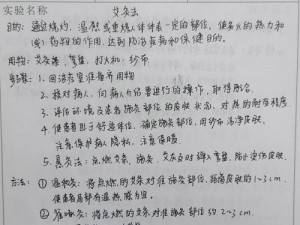 实验名称 艾灸法
目的：通过烧灼、温熨或熏烤人体体表一定的部位，借灸火的热力和
(或)药物的作用，达到防治疾病和保健目的。
用物：艾条、弯盘、打火机、纱布
步骤：1. 回治疗室准备齐用物
2. 核对病人，向病人介绍要进行的操作，取得配合。
3. 评估环境及患者施灸部位的皮肤状况，对热的耐受程度
4. 使患者处于舒适体位，确定施灸部位，用纱布清净皮肤，
注意保护病人隐私，注意保暖。
5. 具灸法：点燃艾条，施灸，艾灰及时弹入弯盘，防止烫伤皮肤
方法：① 温和灸：将点燃的艾条对准施灸部位，距离皮肤约1~3cm，
使患者局部有温热感为宜。
② 雀啄灸：将点燃的艾条对准施灸部位约2~3cm，